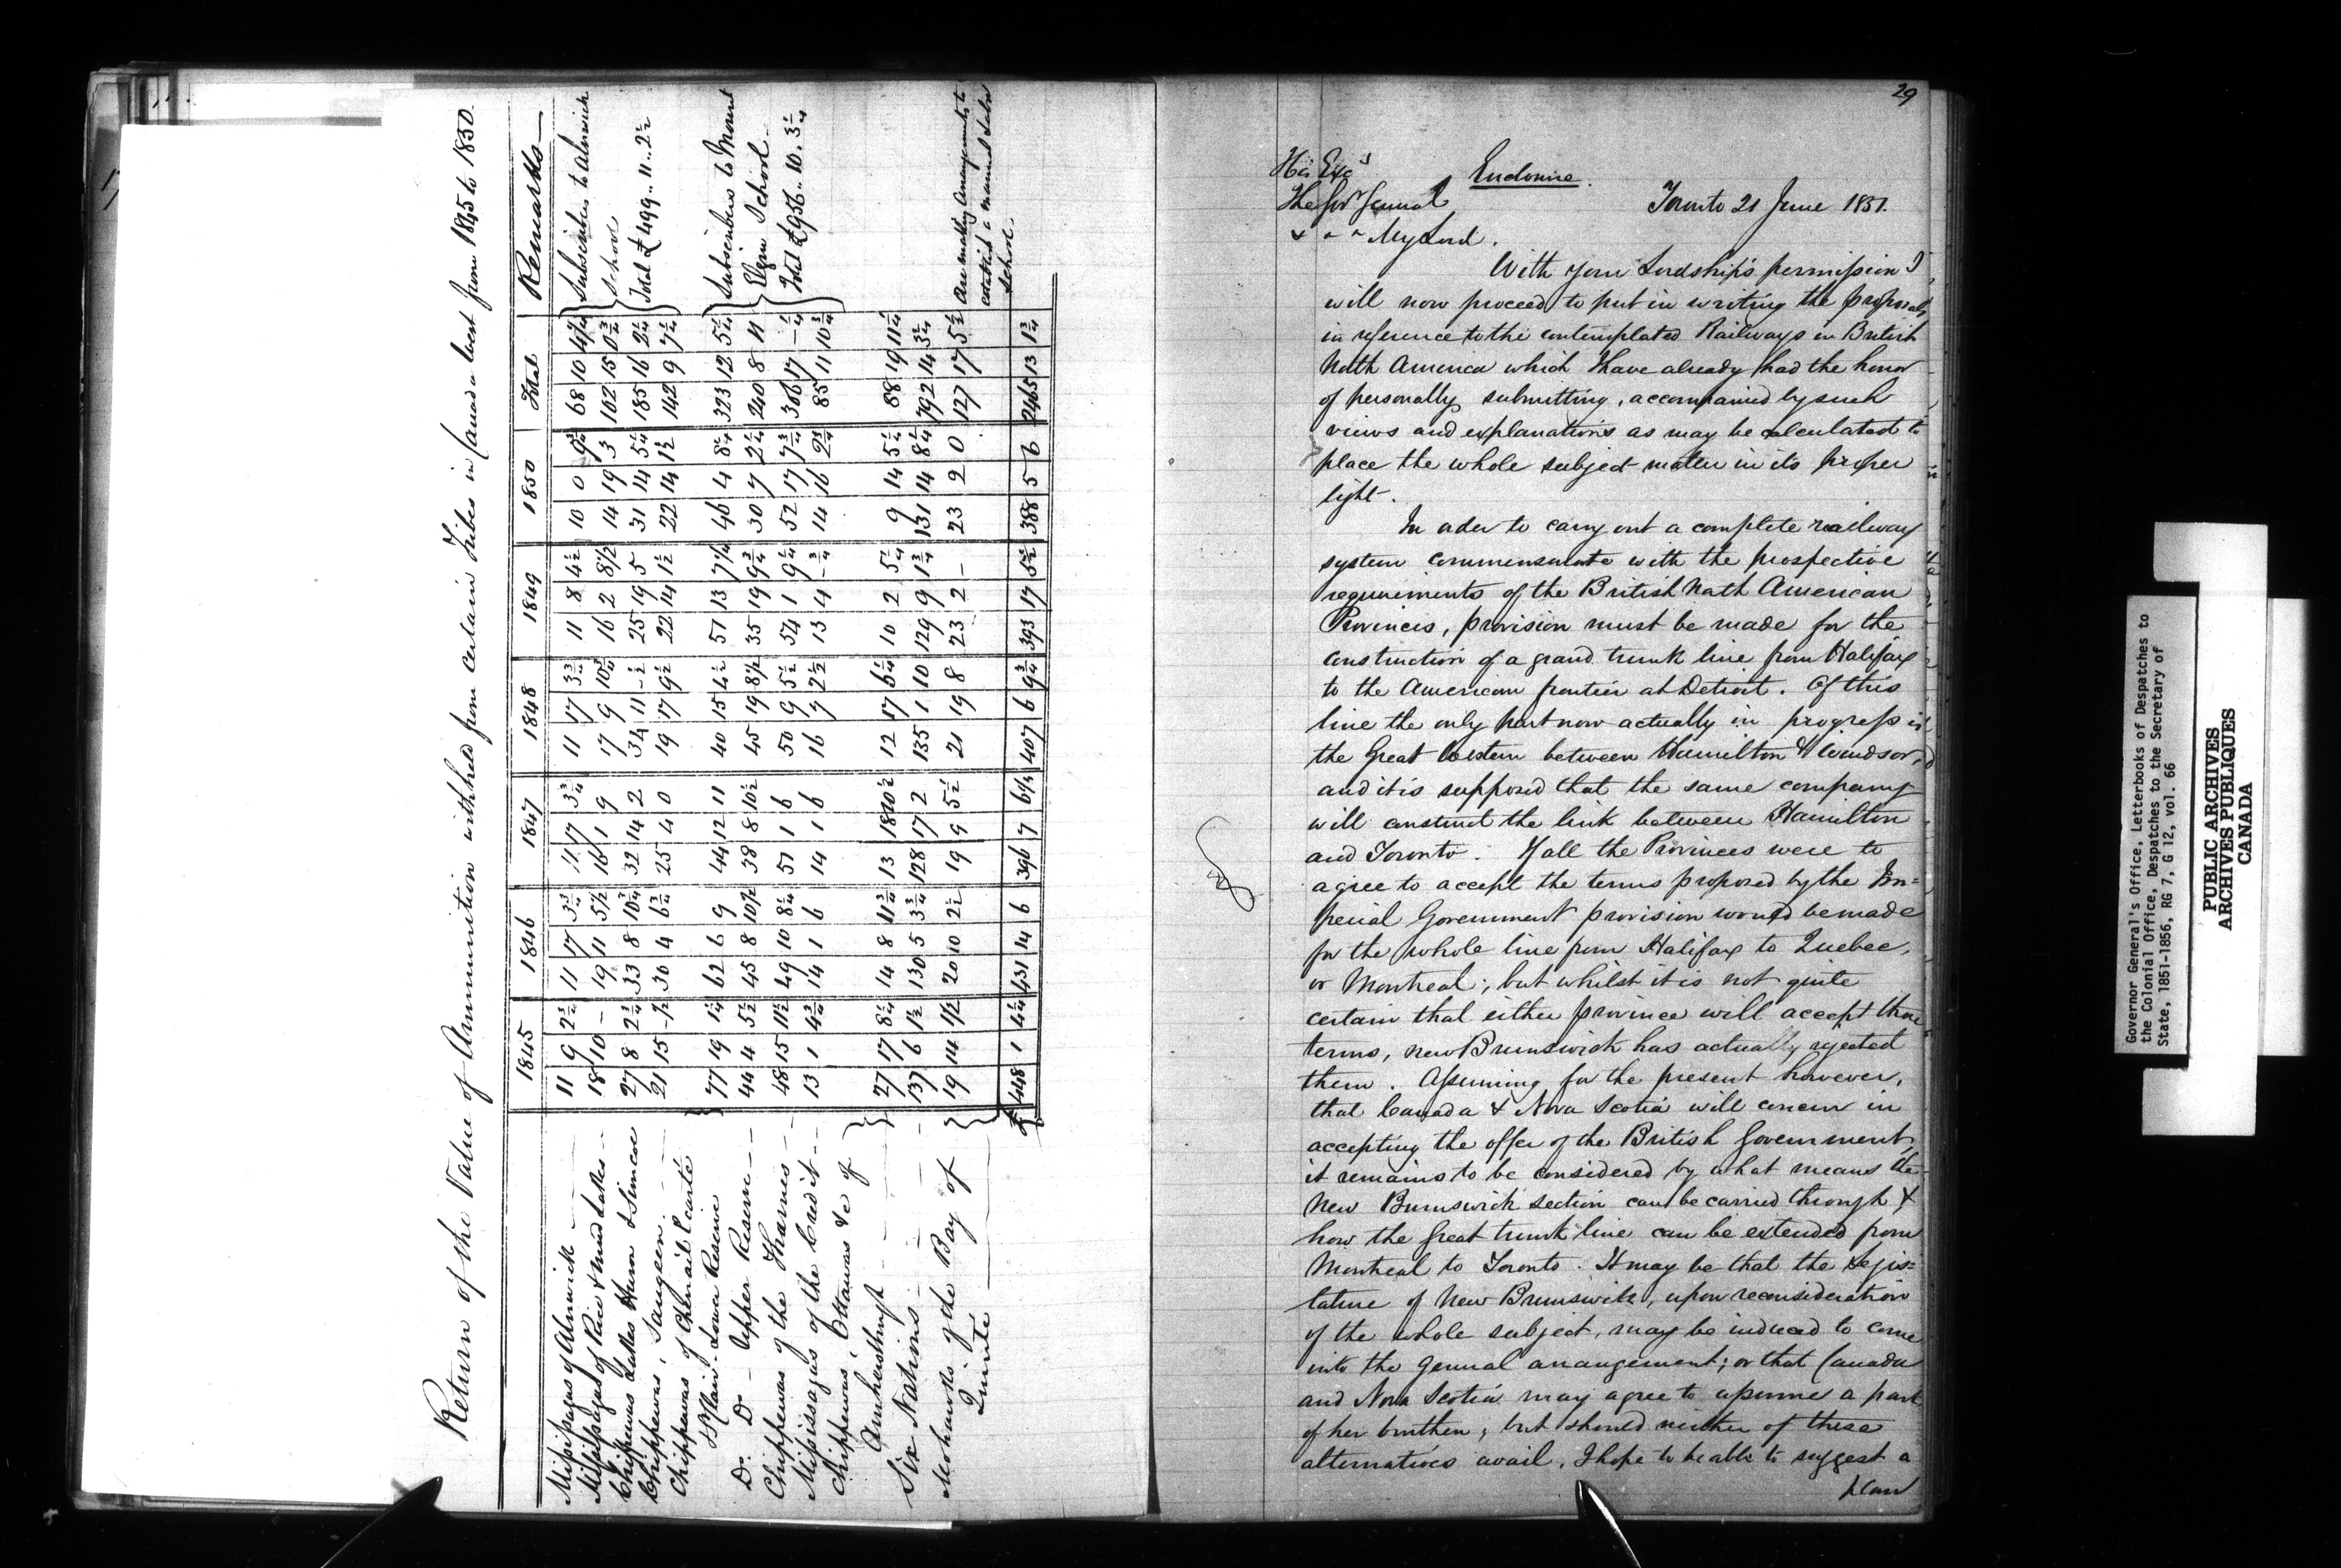 Return of the Value of Ammunition withheld from certain Tribes in Canada West from 1845 to 1850.
1845 1846 1847 1848 1849 1850 Total Remarks
Missisagas of Alnwick 11 9 2 3/4 11 17 3 3/4 11 17 3 3/4 11 17 3 3/4 11 8 4 1/2 10 0 9 3/4 68 10 4 1/4 Subscribes to Alnwick
Missisagas of Rice & Mud Lakes 18 10 - 19 11 5 1/2 16 1 9 17 9 10 3/4 16 2 8 1/2 14 19 3 102 15 0 3/4 School
Chippewas Lakes Huron & Simcoe 27 8 2 3/4 33 8 10 3/4 32 14 2 34 11 - 1/2 25 19 5 31 14 5 1/4 185 16 2 1/4 Total £499..11..2 1/2
Chippewas, Saugeen 21 15 - 1/2 30 4 6 3/4 25 4 0 19 17 9 1/2 22 14 1 1/2 22 14 1 1/2 142 9 7 1/2
Chippewas of Chenail Ecarté
St Clair. Lower Reserve 77 19 1 1/4 62 6 9 44 12 11 40 15 4 1/2 51 13 7 1/4 46 4 8 1/4 323 12 5 1/4 Subscribers to Mount
Do Do - Upper Reserve 44 4 5 1/2 45 8 10 1/2 38 8 10 1/2 45 19 8 1/2 35 19 9 3/4 30 7 2 1/2 240 8 11 Elgin School.
Chippewas of the Thames 48 15 11 1/2 49 10 8 1/4 51 1 6 50 9 5 1/2 54 1 9 1/4 52 17 7 3/4 306 17 - 1/4 Total £956..10..3 1/4
Missisagas of the Credit 13 1 4 3/4 14 1 6 14 1 6 16 7 2 1/2 13 4 - 3/4 14 16 2 3/4 85 11 10 3/4
Chippewas, Ottawas &c of
Amherstburgh 27 17 8 1/4 14 8 11 3/4 13 18 0 1/2 12 17 6 1/4 10 2 5 1/4 9 14 5 1/2 88 19 11 1/4
Six Nations 137 6 1 1/2 130 5 3 3/4 128 17 2 135 1 10 129 9 1 3/4 131 14 8 1/4 792 14 3 1/4
Mohawks of the Bay of
Quinte 19 14 1 1/2 20 10 2 1/2 19 9 5 1/2 21 19 8 23 2 - 23 2 0 127 17 5 1/2 Are making Arrangements to
establish a manual labor
school.
£ 448 1 4 1/4 431 14 6 396 7 6 1/4 407 6 9 3/4 393 17 5 1/2 388 5 6 2465 13 1 3/4
29
His Excy
The Govr General
Enclosure.
Toronto 21 June 1851.
My Lord.
With your Lordship's permission I
will now proceed to put in writing the proposals
in reference to the contemplated Railways in British
North America which I have already had the honor
of personally submitting, accompanied by such
views and explanations as may be calculated to
place the whole subject matter in its proper
light.
In order to carry out a complete railway
system commensurate with the prospective
requirements of the British North American
Provinces, provision must be made for the
construction of a grand trunk line from Halifax
to the American frontier at Detroit. Of this
line the only part now actually in progress is
the Great Western between Hamilton & Windsor,
and it is supposed that the same company
will construct the link between Hamilton
and Toronto. If all the Provinces were to
agree to accept the terms proposed by the Im=
perial Government provision would be made
for the whole line from Halifax to Quebec,
or Montreal; but whilst it is not quite
certain that either province will accept those
terms, New Brunswick has actually rejected
them. Assuming for the present however,
that Canada & Nova Scotia will concur in
accepting the offer of the British Government,
it remains to be considered by what means the
New Brunswick section can be carried through &
how the Great trunk line can be extended from
Montreal to Toronto. It may be that the Legis=
lature of New Brunswick, upon reconsideration
of the whole subject, may be induced to come
into the general arrangement; or that Canada
and Nova Scotia may agree to assume a part
of her burthen; but should neither of these
alternatives avail, I hope to be able to suggest a
plan
Governor General's Office, Letterbooks of Despatches to
the Colonial Office, Despatches to the Secretary of
State, 1851-1856, RG 7, G 12, vol. 66
PUBLIC ARCHIVES
ARCHIVES PUBLIQUES
CANADA